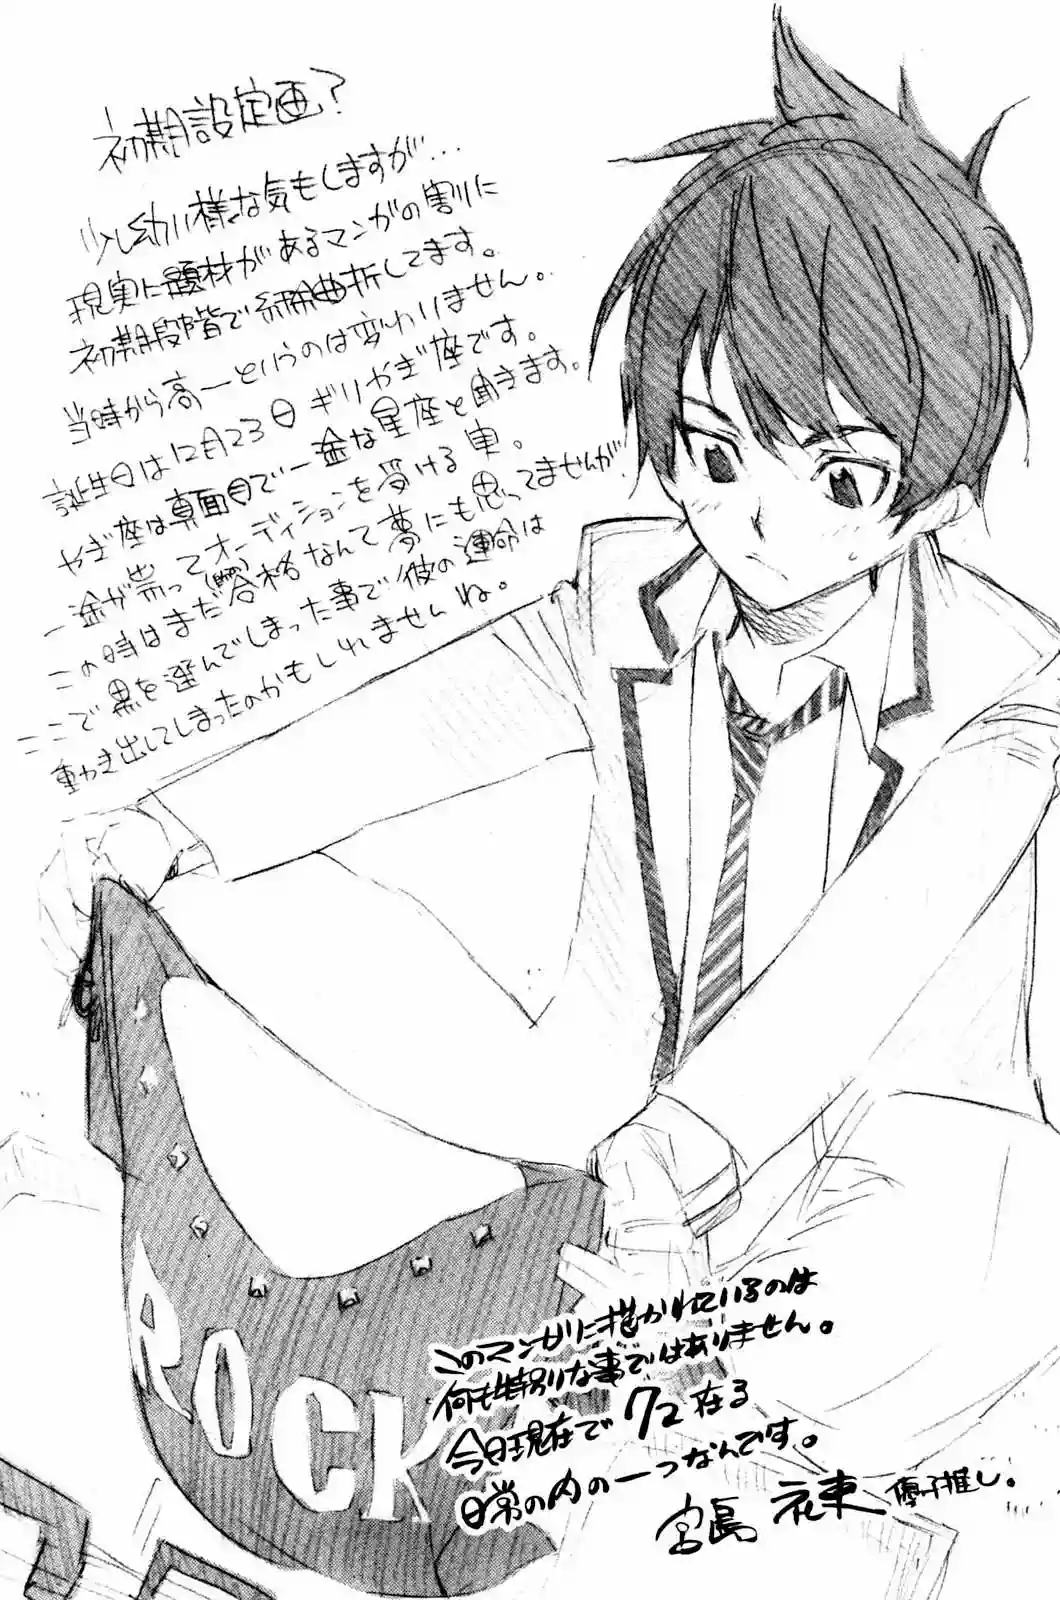 初期設定画?
少し幼い様な気もしますが…
現実に題材があるマンガの割に
初期段階で紆余曲折してます。
当時から高一というのは変わりません。
誕生日は12月23日ギリやぎ座です。
やぎ座は真面目で一途な星座と聞きます。
一途が祟ってオーディションを受ける事。
この時はまだ合格なんて夢にも思ってませんが、
ここで黒を選んでしまった事で彼の運命は
動き出してしまったのかもしれませんね。
このマンガに描かれているのは
何も特別な事ではありません。
今日現在で72在る
日常の内の一つなんです。
宮島 礼吏 優子推し。
ROCK